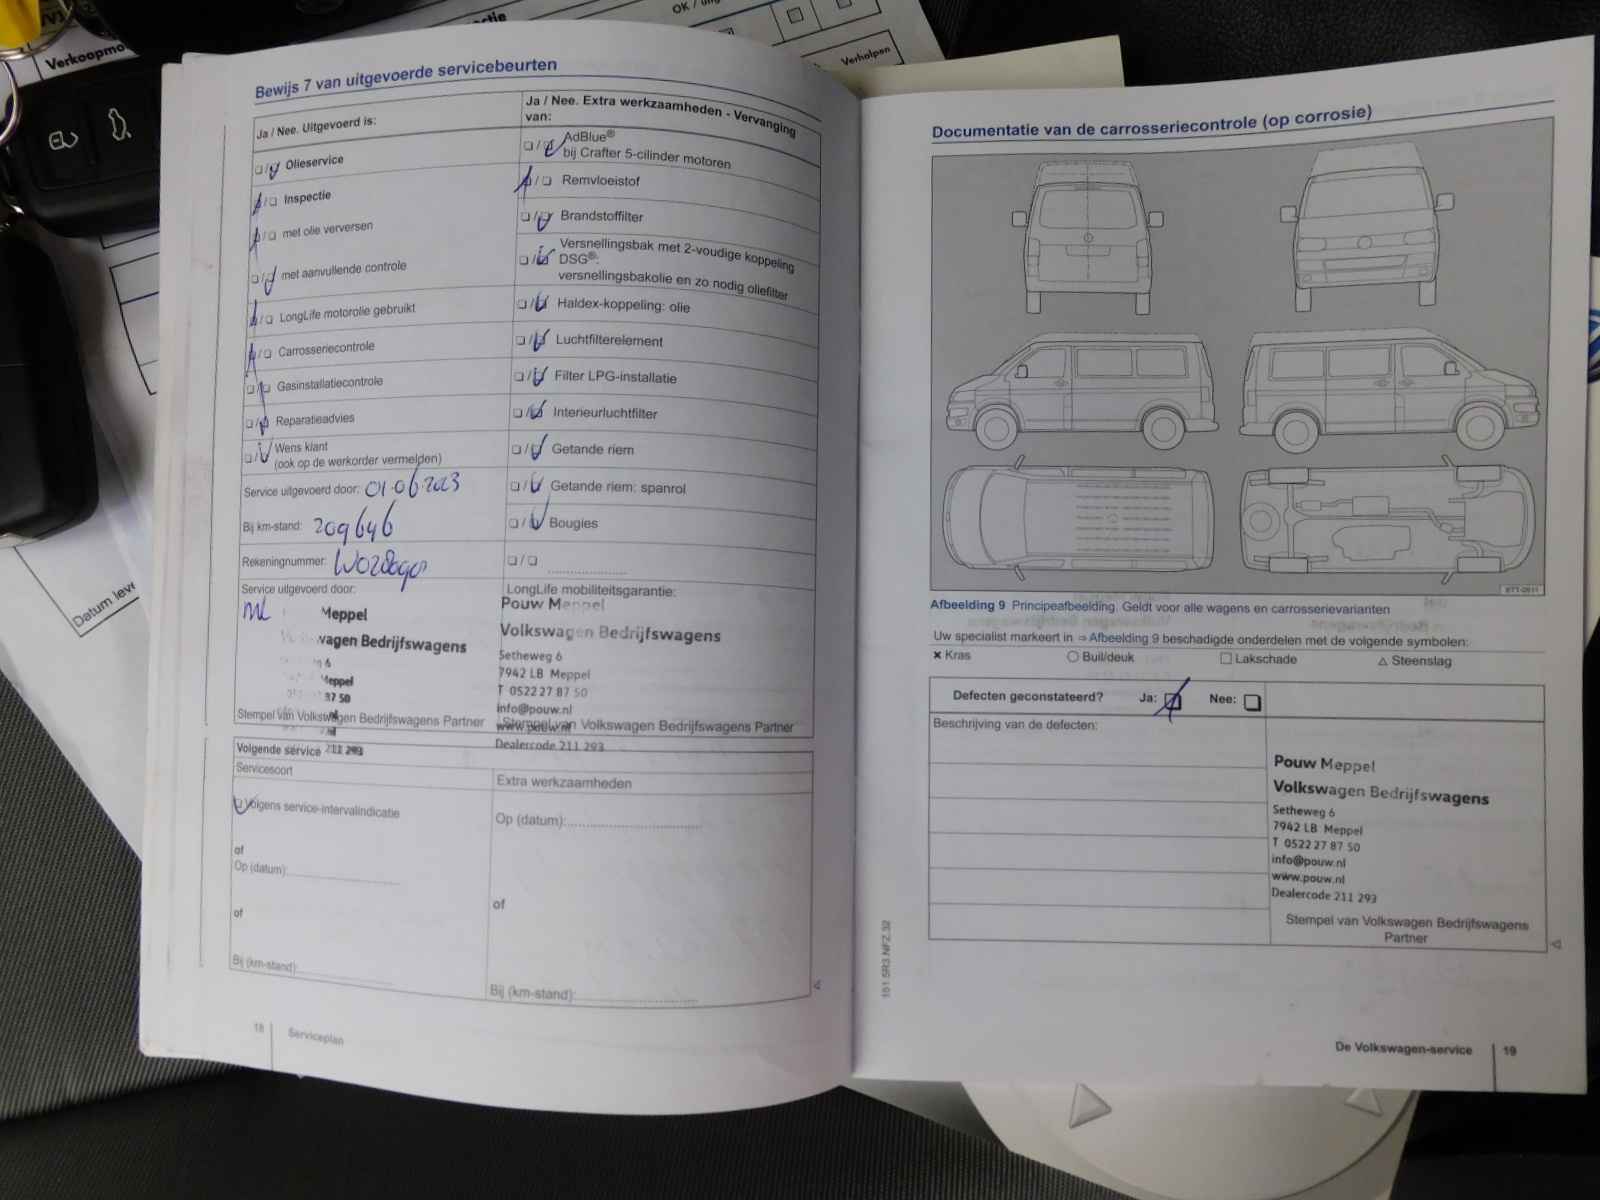 Verkoopmo
OK /
Verholpen
Datum leve
Bewijs 7 van uitgevoerde servicebeurten
Ja / Nee. Uitgevoerd is:
Olieservice
Inspectie
met olie verversen
met aanvullende controle
LongLife motorolie gebruikt
Carrosseriecontrole
Gasinstallatiecontrole
Reparatieadvies
Wens klant
(ook op de werkorder vermelden)
Service uitgevoerd door: 01-06-2023
Bij km-stand: 209646
Rekeningnummer:
Service uitgevoerd door:
ML
Meppel
wagen Bedrijfswagens
6
Meppel
87 50
211 293
Stempel van Volkswagen Bedrijfswagens Partner
Ja / Nee. Extra werkzaamheden - Vervanging
van:
AdBlue®
bij Crafter 5-cilinder motoren
Remvloeistof
Brandstoffilter
Versnellingsbak met 2-voudige koppeling
DSG®:
versnellingsbakolie en zo nodig oliefilter
Haldex-koppeling: olie
Luchtfilterelement
Filter LPG-installatie
Interieurluchtfilter
Getande riem
Getande riem: spanrol
Bougies
LongLife mobiliteitsgarantie:
Pouw Meppel
Volkswagen Bedrijfswagens
Setheweg 6
7942 LB Meppel
T 0522 27 87 50
info@pouw.nl
www.pouw.nl
Stempel van Volkswagen Bedrijfswagens Partner
Dealercode 211 293
Volgende service
Servicesoort
Volgens service-intervalindicatie
of
Op (datum):
of
Bij (km-stand):
Extra werkzaamheden
Op (datum):
of
Bij (km-stand):
18
Serviceplan
Documentatie van de carrosseriecontrole (op corrosie)
Afbeelding 9 Principeafbeelding. Geldt voor alle wagens en carrosserievarianten
Uw specialist markeert in ⇒ Afbeelding 9 beschadigde onderdelen met de volgende symbolen:
× Kras
○ Buil/deuk
□ Lakschade
△ Steenslag
Defecten geconstateerd? Ja: Nee:
Beschrijving van de defecten:
Pouw Meppel
Volkswagen Bedrijfswagens
Setheweg 6
7942 LB Meppel
T 0522 27 87 50
info@pouw.nl
www.pouw.nl
Dealercode 211 293
Stempel van Volkswagen Bedrijfswagens
Partner
151.5R3.NFZ.32
De Volkswagen-service
19